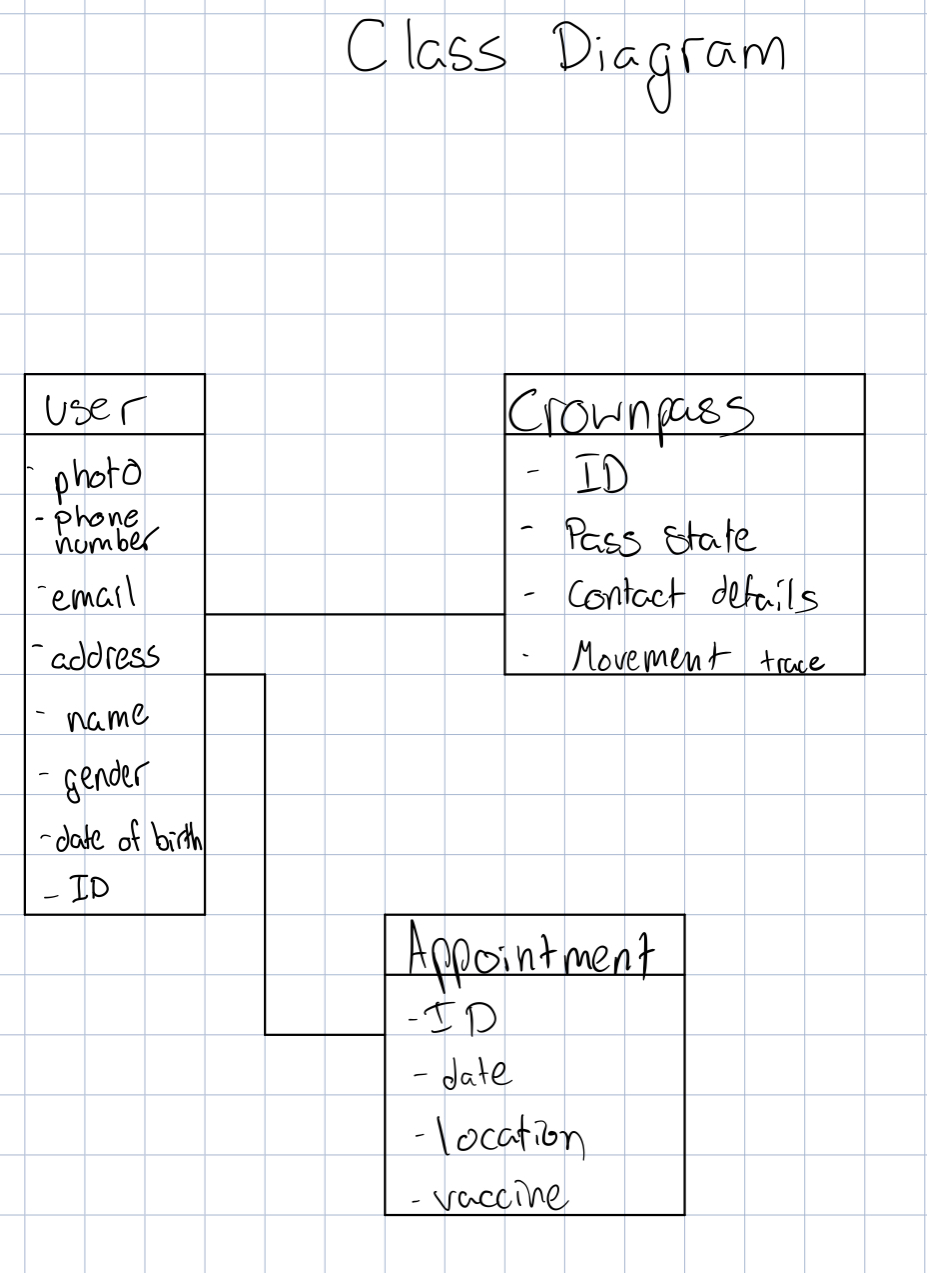 Class Diagram
user
- photo
- phone
number
- email
- address
- name
- gender
- date of birth
- ID
Crownpass
- ID
- Pass state
- Contact details
- Movement trace
Appointment
- ID
- date
- location
- vaccine